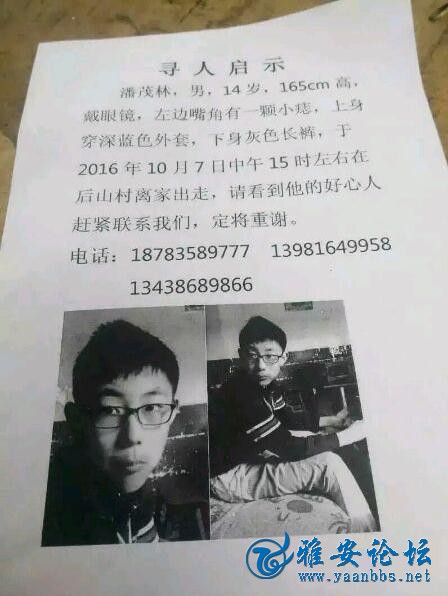 寻人启示
潘茂林，男，14岁，165cm高，
戴眼镜，左边嘴角有一颗小痣，上身
穿深蓝色外套，下身灰色长裤，于
2016年10月7日中午15时左右在
后山村离家出走，请看到他的好心人
赶紧联系我们，定将重谢。
电话：18783589777 13981649958
13438689866
雅安论坛
www.yaanbbs.net